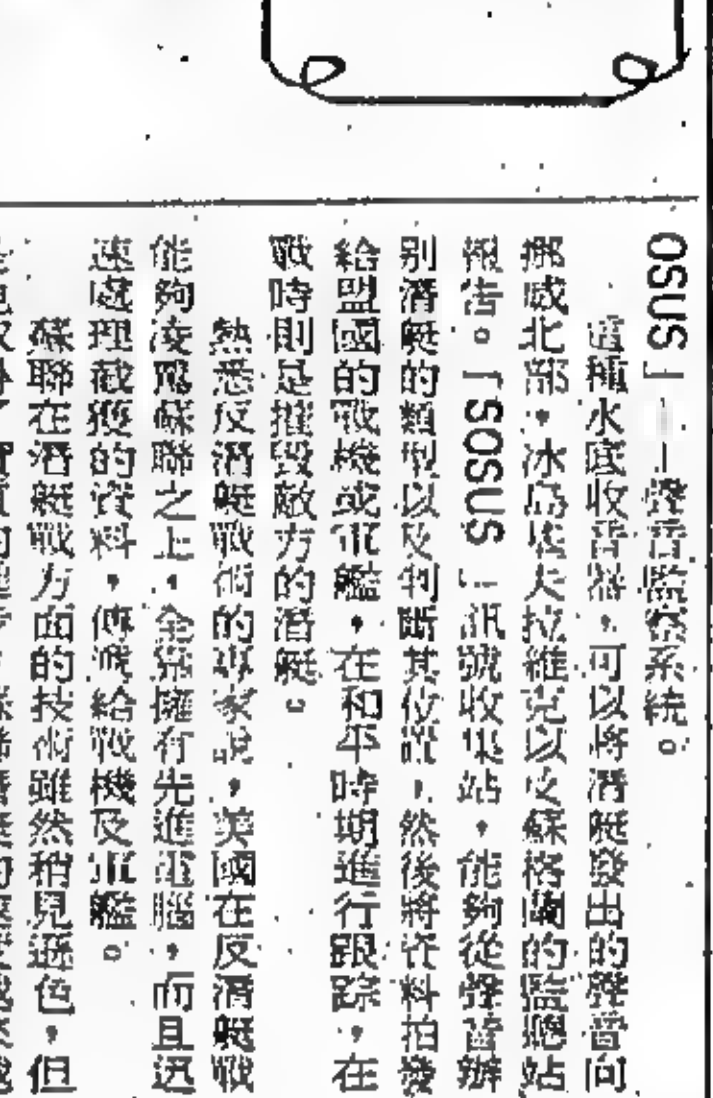 OSUS」—聲音監察系統。
這種水底收音器，可以將潛艇發出的聲音向
挪威北部，冰島埃夫拉維克以及蘇格蘭的監聽站
報告。「SOSUS」訊號收集站，能夠從聲音辦
別潛艇的類型以及判斷其位置，然後將資料拍發
給盟國的戰機或軍艦，在和平時期進行跟踪，在
戰時則是摧毀敵方的潛艇。
熱悉反潛艇戰術的專家說，美國在反潛艇戰
能夠凌駕蘇聯之上，全靠擁有先進電腦，而且迅
速處理截獲的資料，傳遞給戰機及軍艦。
蘇聯在潛艇戰方面的技術雖然稍見遜色，但